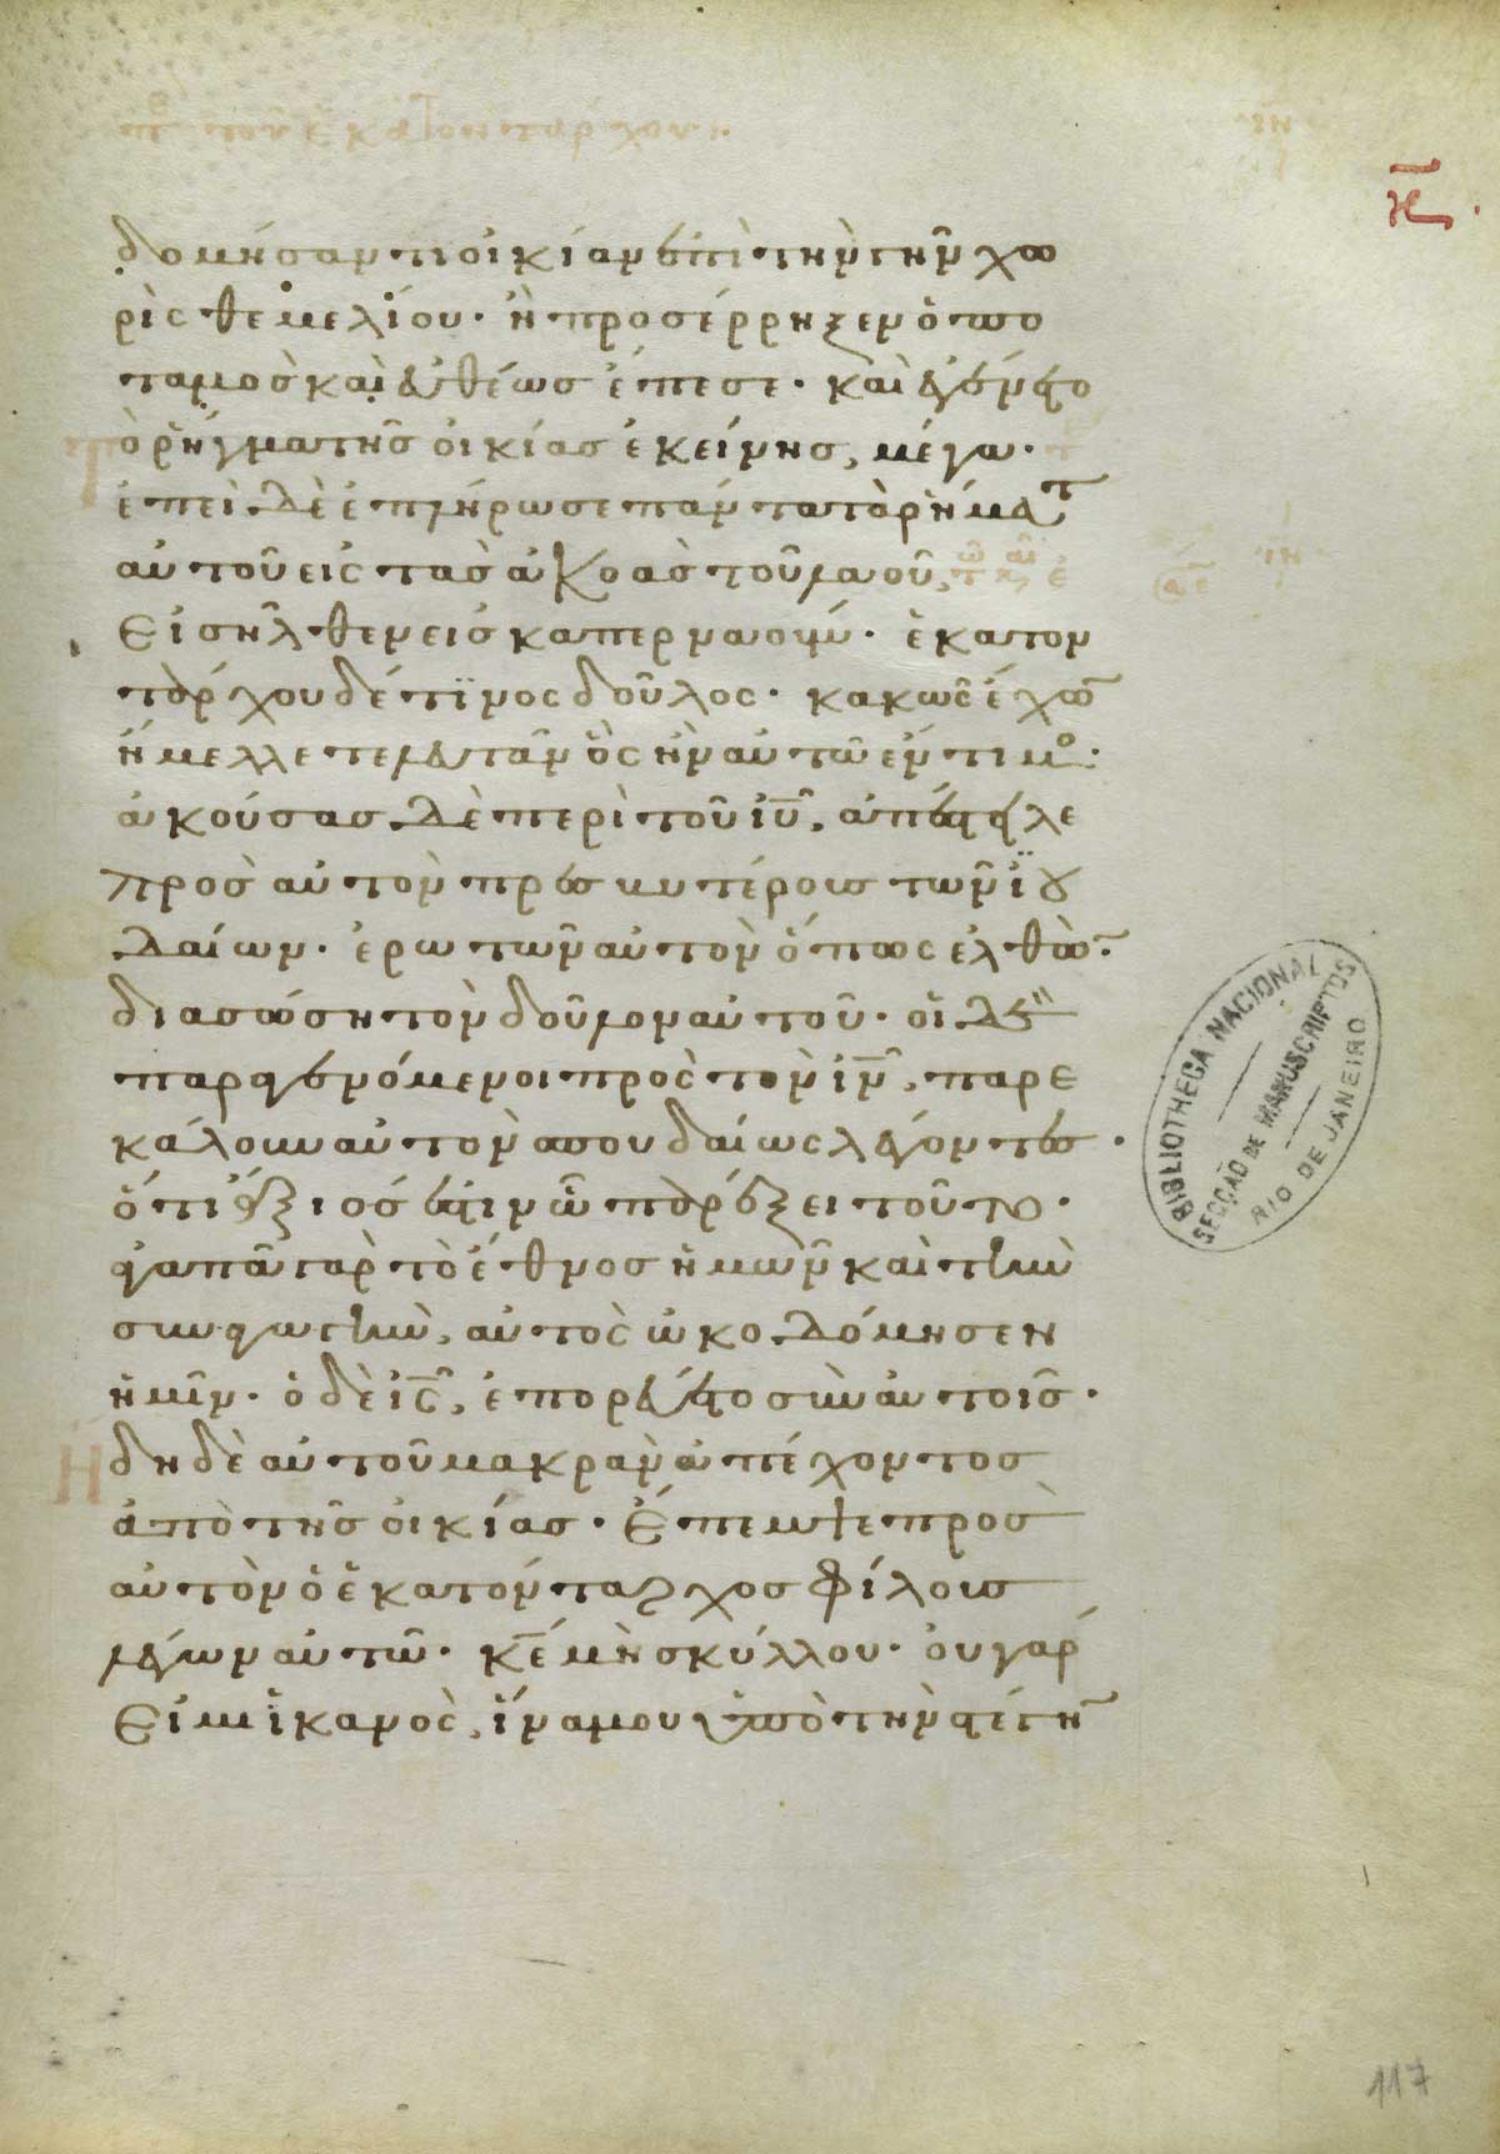 πε τοῦ ἑκατοντάρχου
κ̅.
δομήσαντι οἰκίαν ἐπὶ τὴν γῆν χω
ρὶς θεμελίου. ἧ προσέρρηξεν ὁ πο
ταμὸς καὶ εὐθέως ἔπεσε. καὶ ἐγένετο
τὸ ῥῆγμα τῆς οἰκίας ἐκείνης, μέγα.
ἐπεὶ δὲ ἐπλήρωσε πάντα τὰ ῥήματ
αὐτοῦ εἰς τὰς ἀκοὰς τοῦ λαοῦ,
Εἰσῆλθεν εἰς καπερναούμ. ἑκατον
τάρχου δέ τϊνος δοῦλος. κακῶς ἔχω̅
ἤμελλε τελευτᾶν ὃς ἦν αὐτῶ ἔντιμο.
ἀκούσας δὲ περὶ τοῦ ἰ̅υ̅, ἀπέστειλε
πρὸς αὐτὸν πρεσβυτέρους τῶν ἰου
δαίων. ἐρωτῶν αὐτὸν ὅπως ἐλθὼ̅.
διασώση τὸν δοῦλον αὐτοῦ. οἱ δὲ
παραγενόμενοι πρὸς τὸν ἰ̅ν̅, παρε
κάλουν αὐτὸν σπουδαίως λέγοντες.
ὅτι ἄξιός ἐστιν ὧ παρέξει τοῦτο.
ἀγαπᾶ γὰρ τὸ ἔθνος ἡμῶν καὶ τὴν
συναγωγὴν, αὐτὸς ὠκοδόμησεν
ἡμῖν. ὁ δὲ ἰ̅ς̅, ἐπορεύετο σὺν αὐτοῖς.
Ἤδη δὲ αὐτοῦ μακρὰν ἀπέχοντος
ἀπὸ τῆς οἰκίας. ἔπεμψε πρὸς
αὐτὸν ὁ ἑκατόνταρχος φίλους
λέγων αὐτῶ. κ̅ε̅ μὴ σκύλλου. οὐ γάρ
Εἰμι ἱκανὸς, ἵνα μου ὑπὸ τὴν στέγη̅
BIBLIOTHECA NACIONAL
SECÇÃO DE MANUSCRIPTOS
RIO DE JANEIRO
117